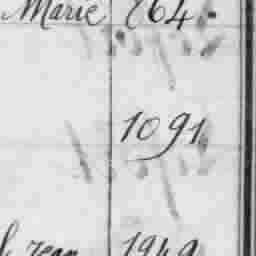 Marie 864.
1091
Jean 1949